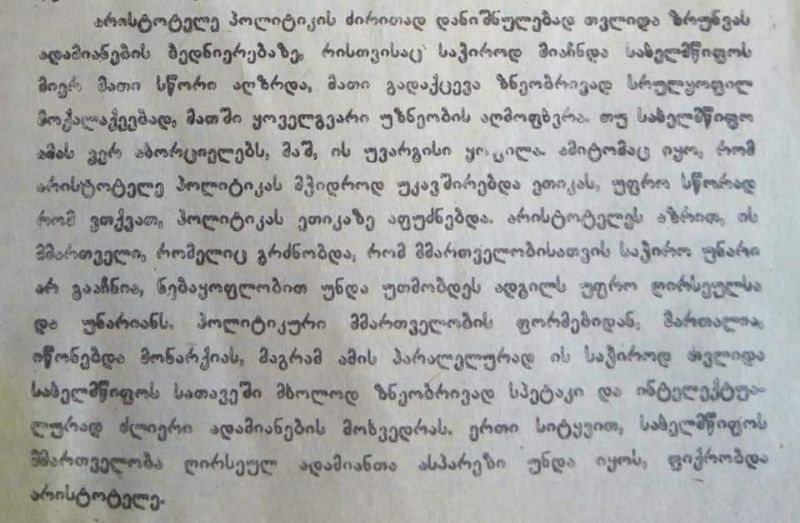 არისტოტელე პოლიტიკის ძირითად დანიშნულებად თვლიდა ზრუნვას
ადამიანების ბედნიერებაზე, რისთვისაც საჭიროდ მიაჩნდა სახელმწიფოს
მიერ მათი სწორი აღზრდა, მათი გადაქცევა ზნეობრივად სრულყოფილ
მოქალაქეებად, მათში ყოველგვარი უზნეობის აღმოფხვრა. თუ სახელმწიფო
ამას ვერ ახორციელებს, მაშ, ის უვარგისი ყოფილა. ამიტომაც იყო, რომ
არისტოტელე პოლიტიკას მჭიდროდ უკავშირებდა ეთიკას, უფრო სწორად
რომ ვთქვათ, პოლიტიკას ეთიკაზე აფუძნებდა. არისტოტელეს აზრით, ის
მმართველი, რომელიც გრძნობდა, რომ მმართველობისათვის საჭირო უნარი
არ გააჩნია, ნებაყოფლობით უნდა უთმობდეს ადგილს უფრო ღირსეულსა
და უნარიანს. პოლიტიკური მმართველობის ფორმებიდან, მართალია,
იწონებდა მონარქიას, მაგრამ ამის პარალელურად ის საჭიროდ თვლიდა
სახელმწიფოს სათავეში მხოლოდ ზნეობრივად სპეტაკი და ინტელექტუა-
ლურად ძლიერი ადამიანების მოხვედრას. ერთი სიტყვით, სახელმწიფოს
მმართველობა ღირსეულ ადამიანთა ასპარეზი უნდა იყოს, ფიქრობდა
არისტოტელე.